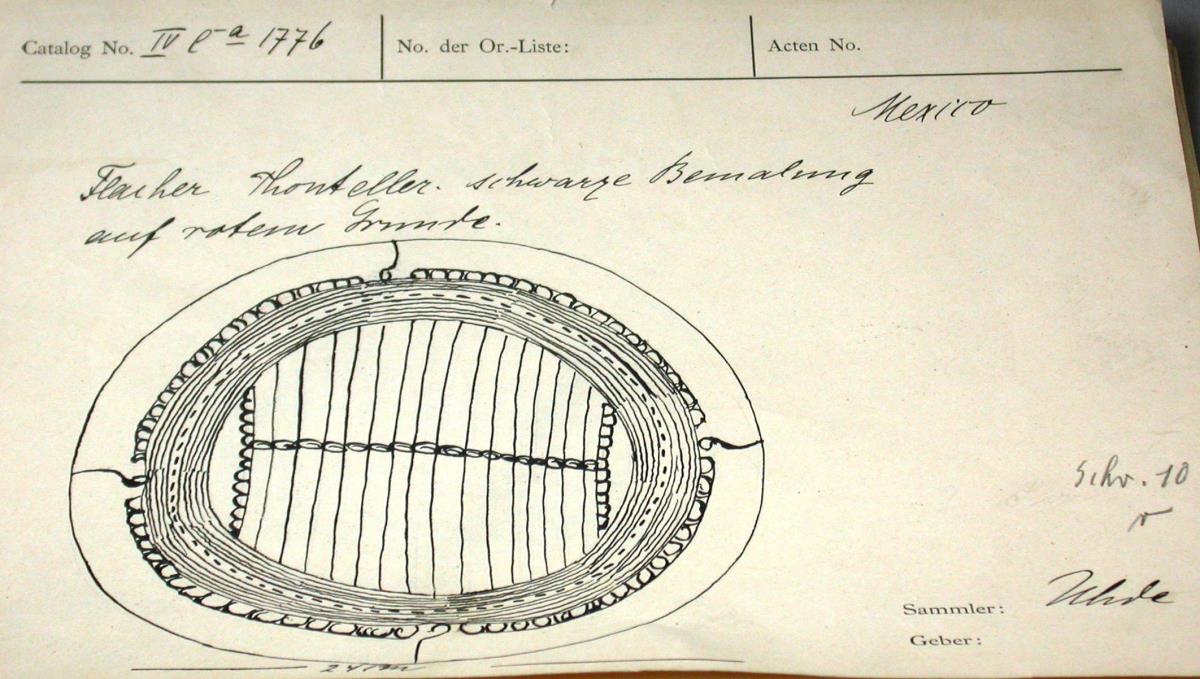 Catalog No. IV Ca 1776 No. der Or.-Liste: Acten No.
Mexico
Flacher Thonteller. schwarze Bemalung
auf rotem Grunde.
Schr. 10
Sammler: Uhde
Geber:
24 cm